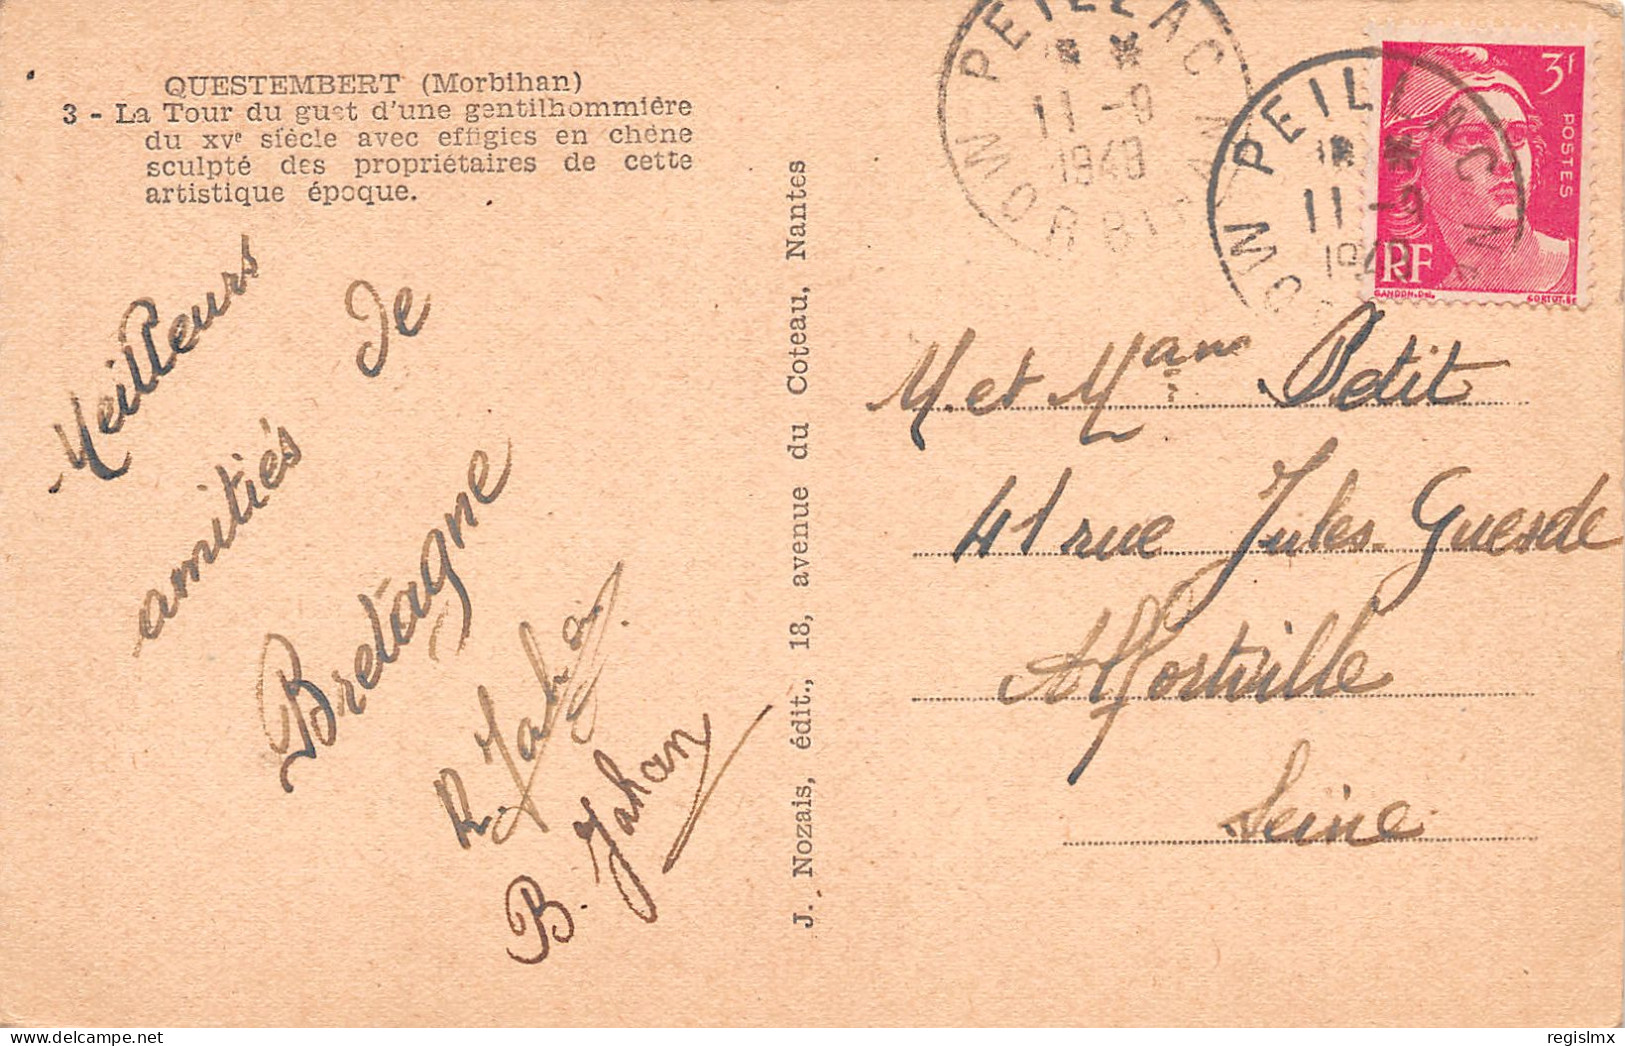 QUESTEMBERT (Morbihan)
3 - La Tour du guet d'une gentilhommière
du XVe siècle avec effigies en chêne
sculpté des propriétaires de cette
artistique époque.
Meilleurs
amitiés de
Bretagne
R. Jahan
B. Jahan
J. Nozais, édit., 18, avenue du Coteau, Nantes
PEILLAC
11 -9
MORBIHAN
PEILLAC
11 -9
MO
3f
POSTES
RF
GANDON.Del.
CORTOT.Sc
M. et Mam Petit
41 rue Jules Guesde
Alfortville
Seine
regislmx